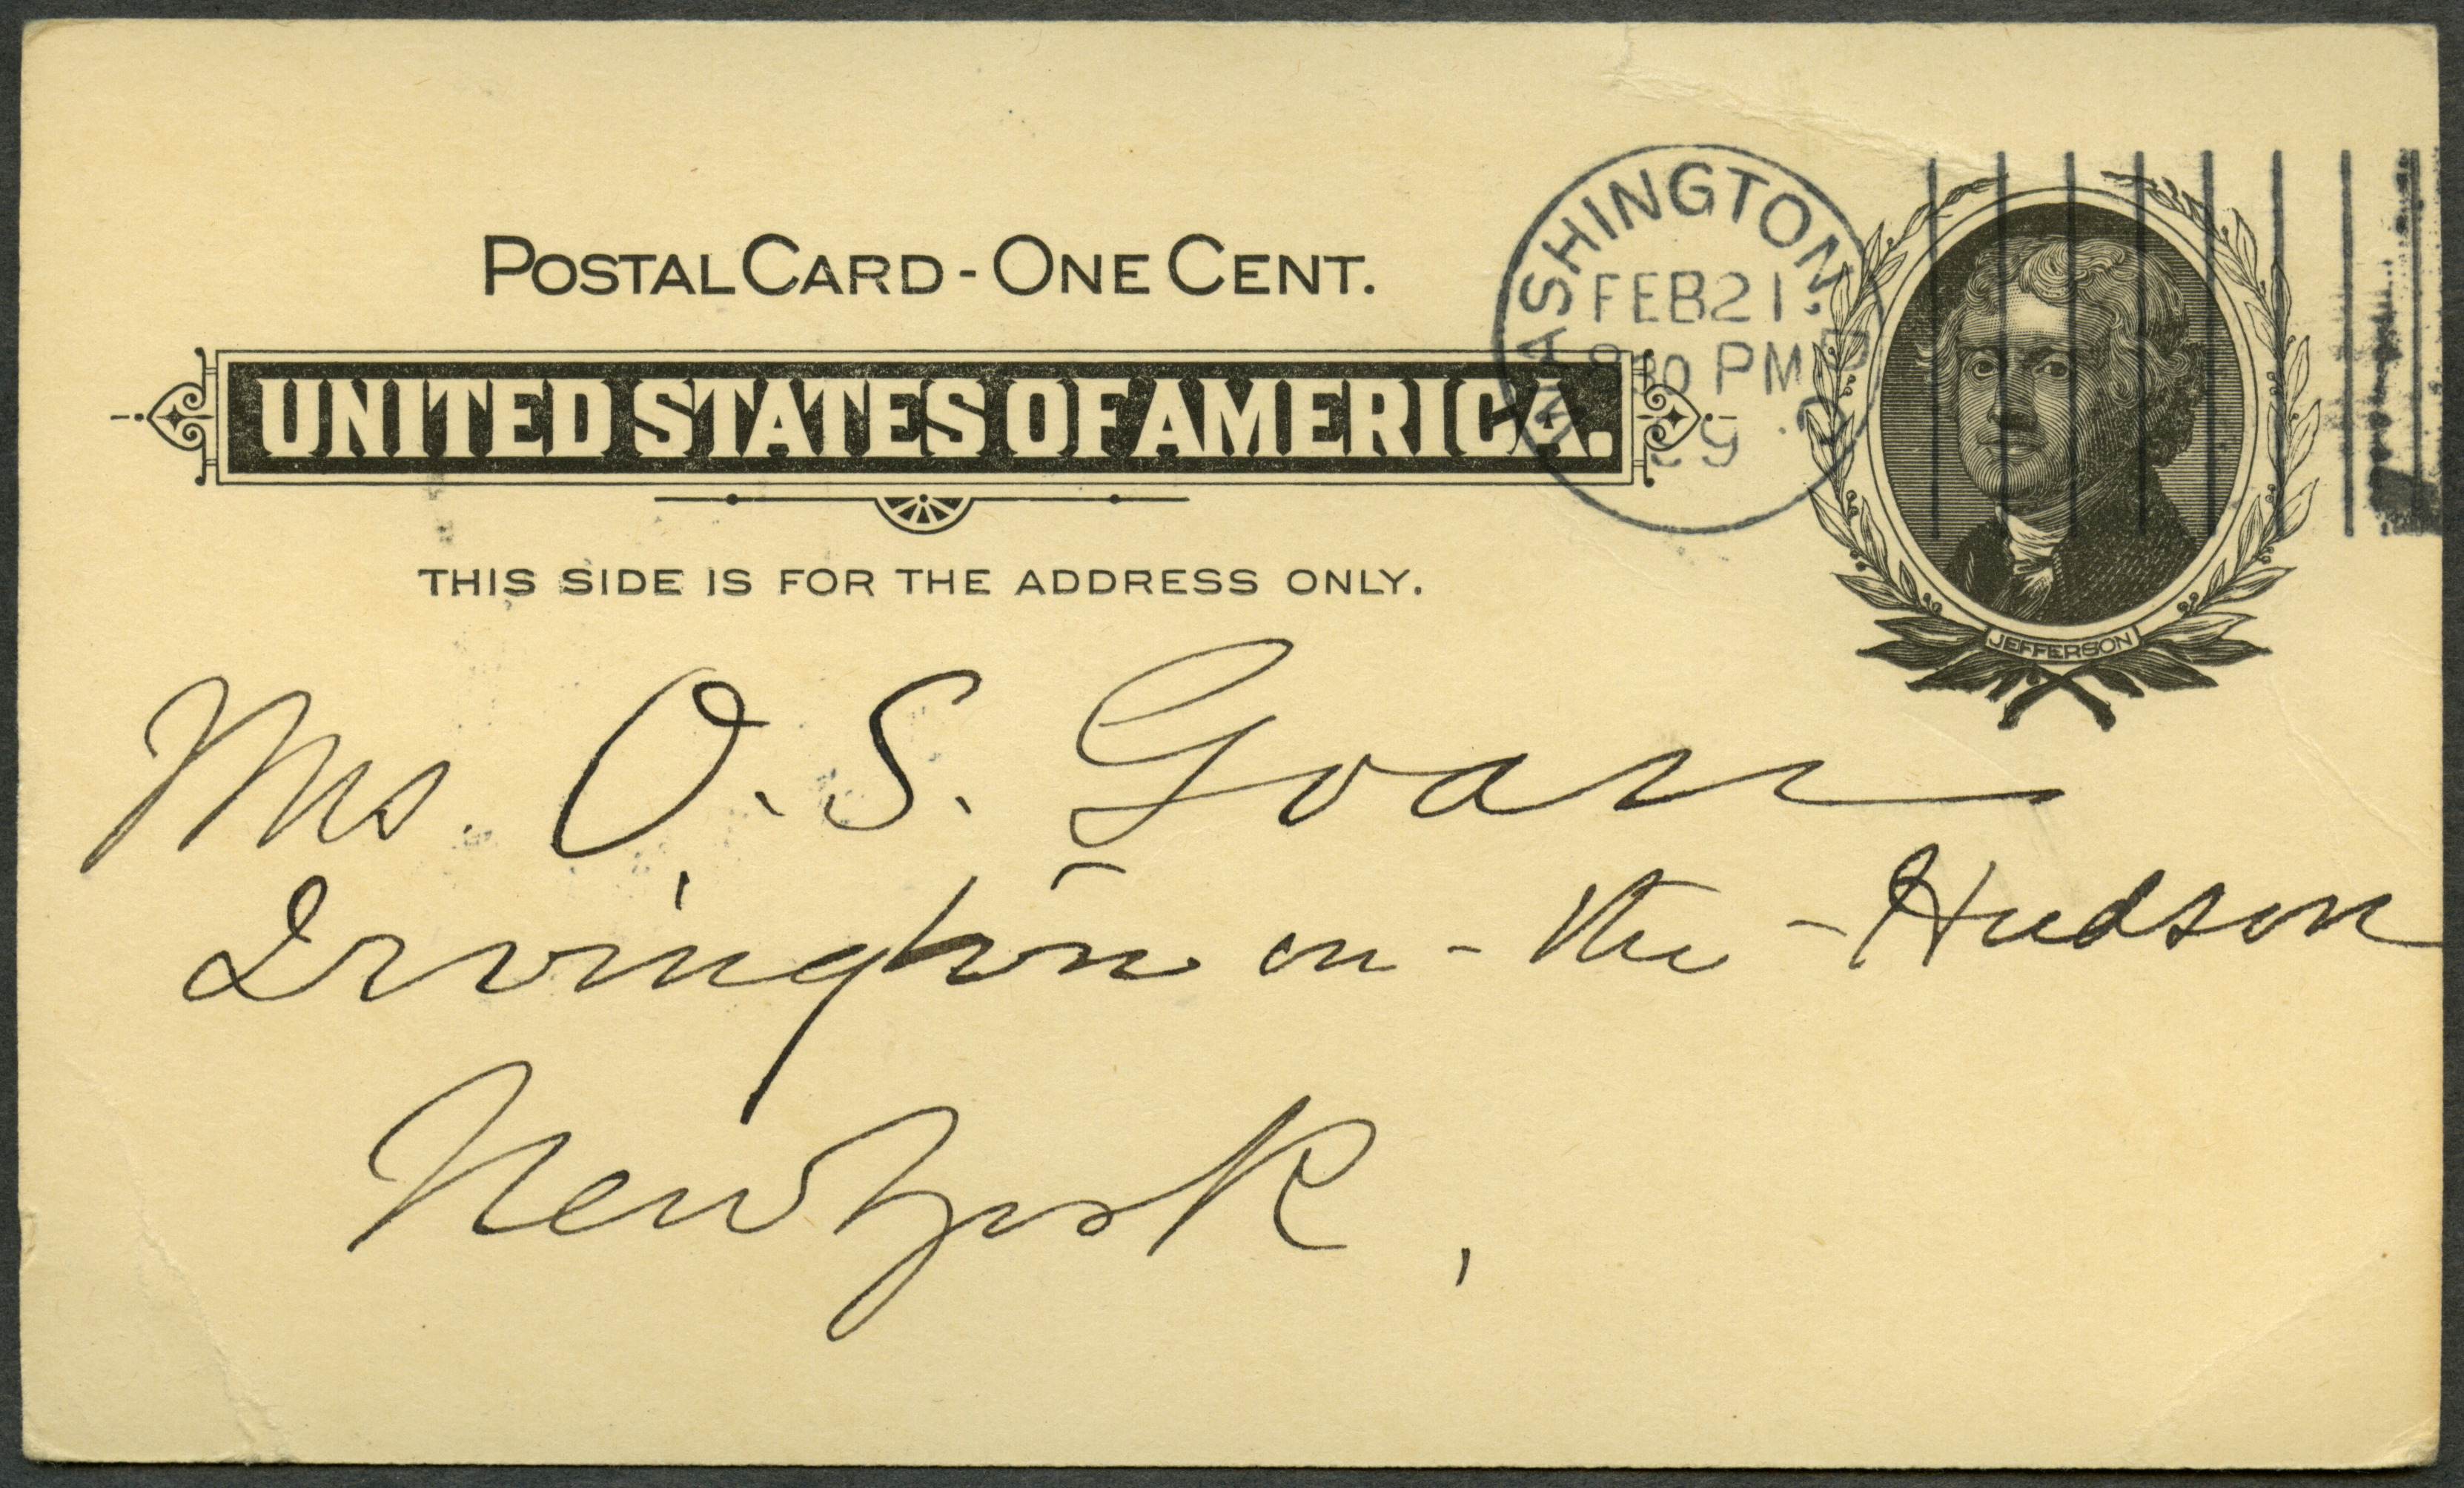 POSTAL CARD - ONE CENT.
UNITED STATES OF AMERICA.
THIS SIDE IS FOR THE ADDRESS ONLY.
WASHINGTON, D
FEB 21
30 PM
JEFFERSON
Mrs. O. S. Goan
Irvington on - the - Hudson
New York,